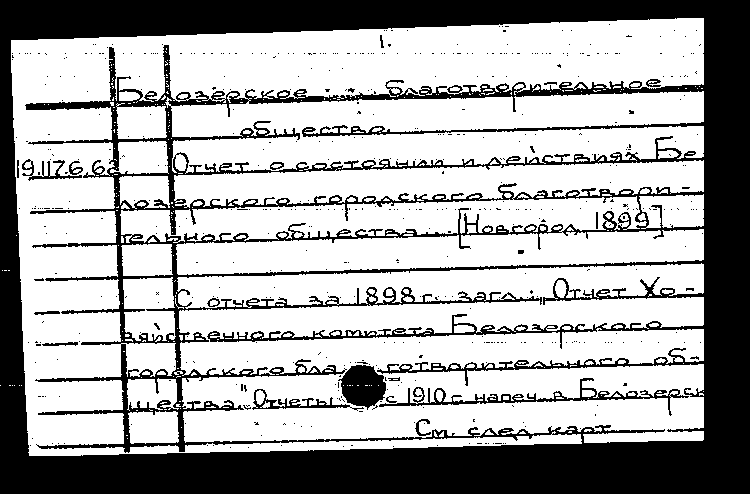 1.
Белозерское благотворительное
общество.
19.117.6.62. Отчет о состоянии и действиях Бе-
лозерского городского благотвори-
тельного общества... [Новгород, 1899]
С отчета за 1898 г. загл.: „Отчет Хо-
зяйственного комитета Белозерского
городского благотворительного об-
щества". Отчеты с 1910 г. напеч. в Белозерск
См. след. карт.